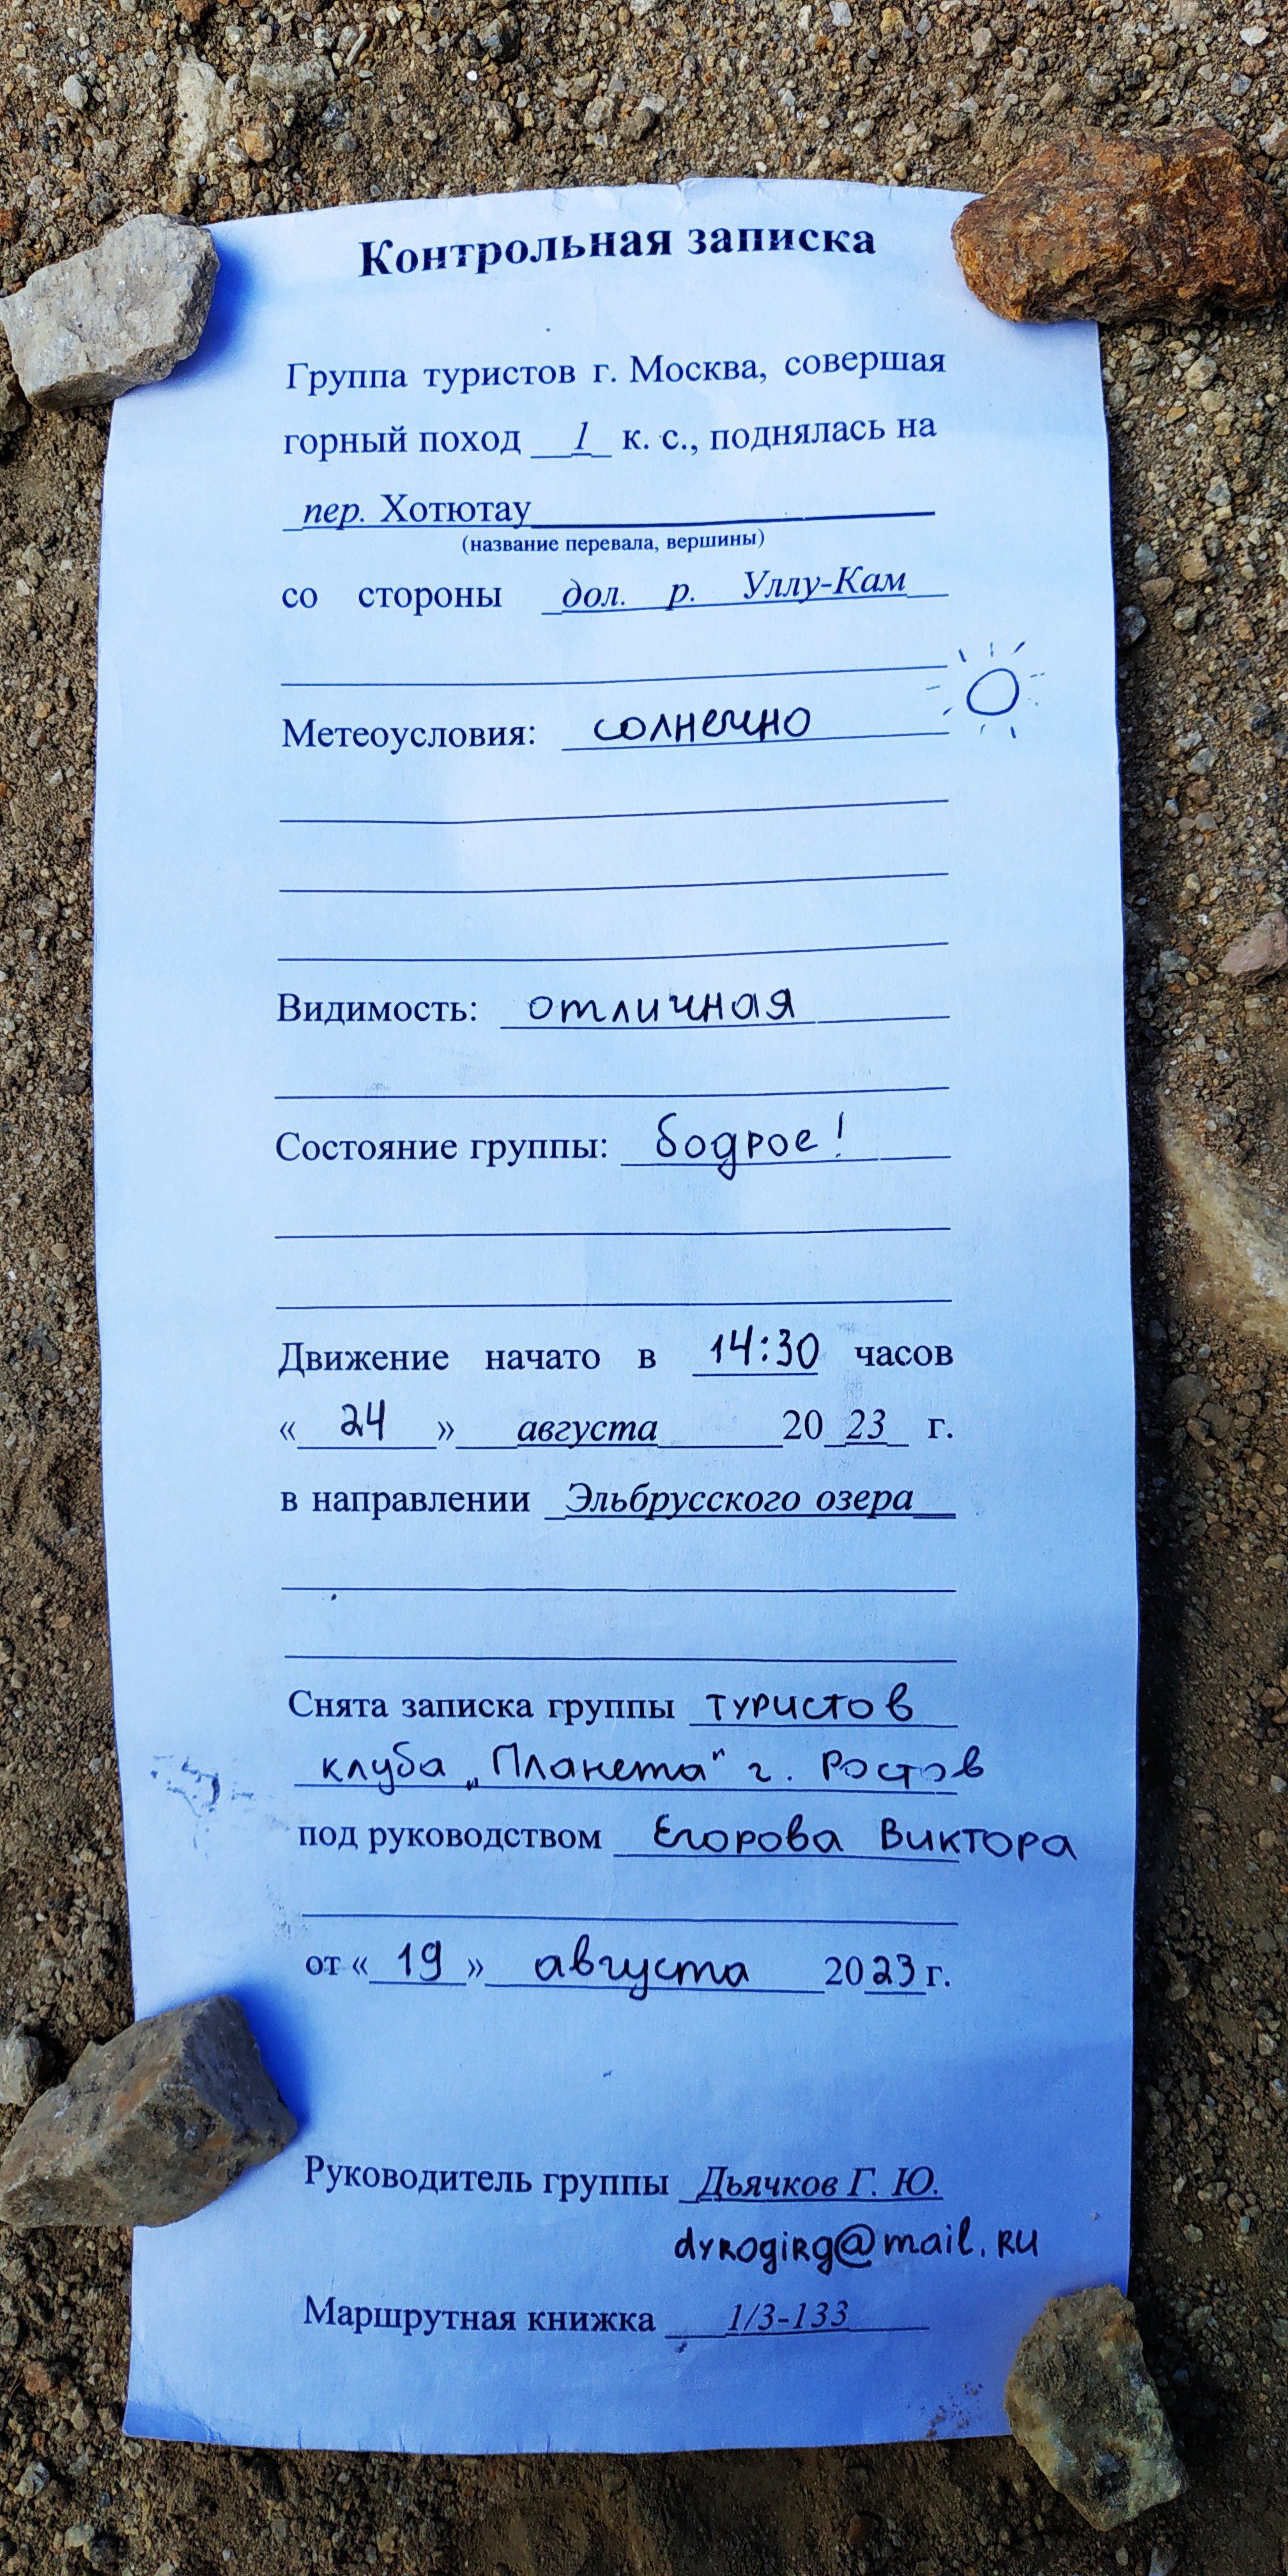 Контрольная записка
Группа туристов г. Москва, совершая
горный поход 1 к. с., поднялась на
пер. Хотютау
(название перевала, вершины)
со стороны дол. р. Уллу-Кам
Метеоусловия: солнечно
Видимость: отличная
Состояние группы: бодрое!
Движение начато в 14:30 часов
« 24 » августа 20 23 г.
в направлении Эльбрусского озера
Снята записка группы туристов
клуба „Планета" г. Ростов
под руководством Егорова Виктора
от « 19 » августа 2023 г.
Руководитель группы Дьячков Г. Ю.
dyrogirg@mail.ru
Маршрутная книжка 1/3-133